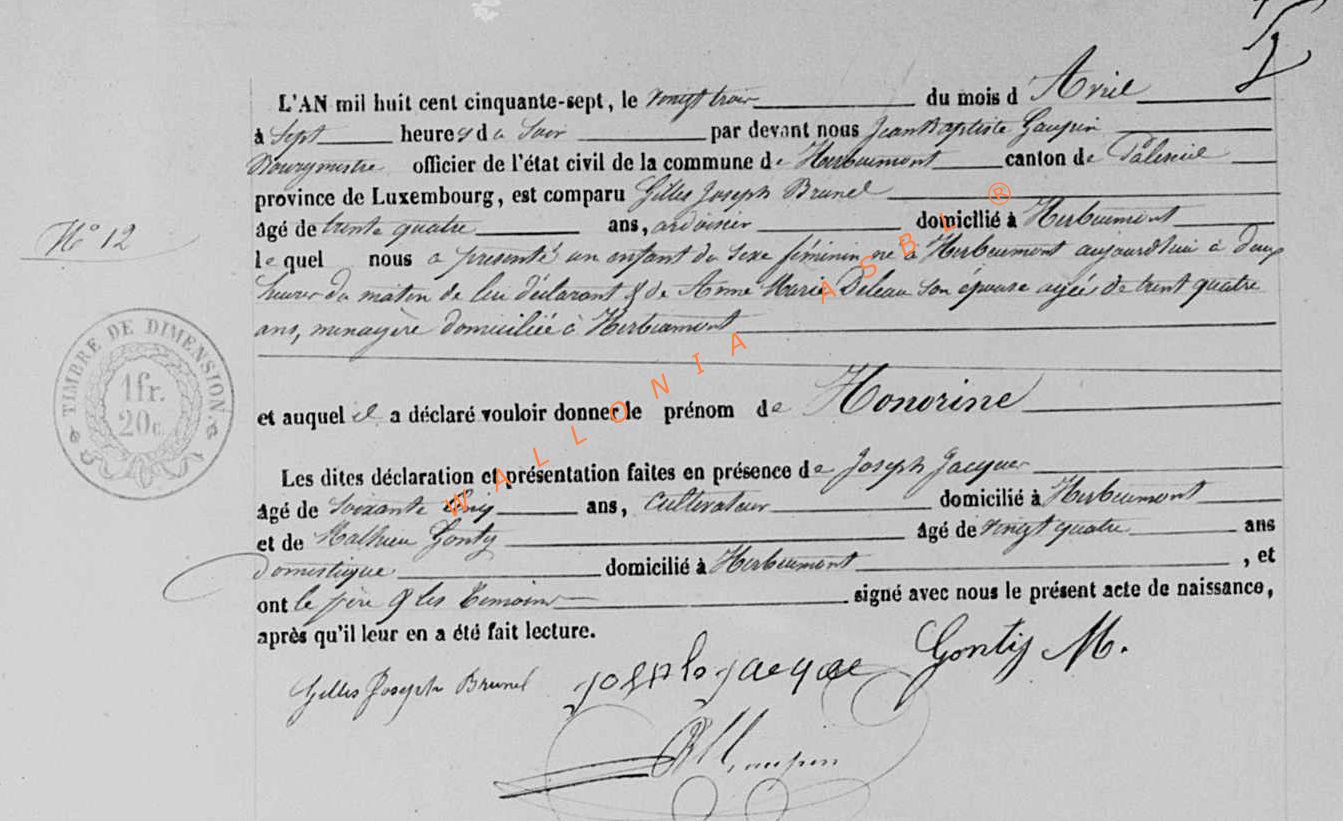 L'AN mil huit cent cinquante-sept, le vingt trois du mois d Avril
à Sept heures du Soir par devant nous Jean Baptiste Gaupin
Bourgmestre officier de l'état civil de la commune de Herbeumont canton de Paliseul
province de Luxembourg, est comparu Gilles Joseph Brunel
âgé de trente quatre ans, ardoisier domicilié à Herbeumont
N° 12
le quel nous a présenté un enfant du sexe féminin né à Herbeumont aujourdhui à deux
heures du matin de lui déclarant & de Anne Marie Deleau son épouse agée de trent quatre
ans, ménagère domiciliée à Herbeumont
TIMBRE DE DIMENSION.
1fr.
20c.
et auquel il a déclaré vouloir donner le prénom de Honorine
Les dites déclaration et présentation faites en présence de Joseph Jacques
âgé de Soixante cinq ans, cultivateur domicilié à Herbeumont
et de Mathieu Gonty âgé de vingt quatre ans
domestique domicilié à Herbeumont, et
ont le père & les témoins signé avec nous le présent acte de naissance,
après qu'il leur en a été fait lecture.
Gilles Joseph Brunel Gontij M.
Gaupin
WALLONIA ASBL ®